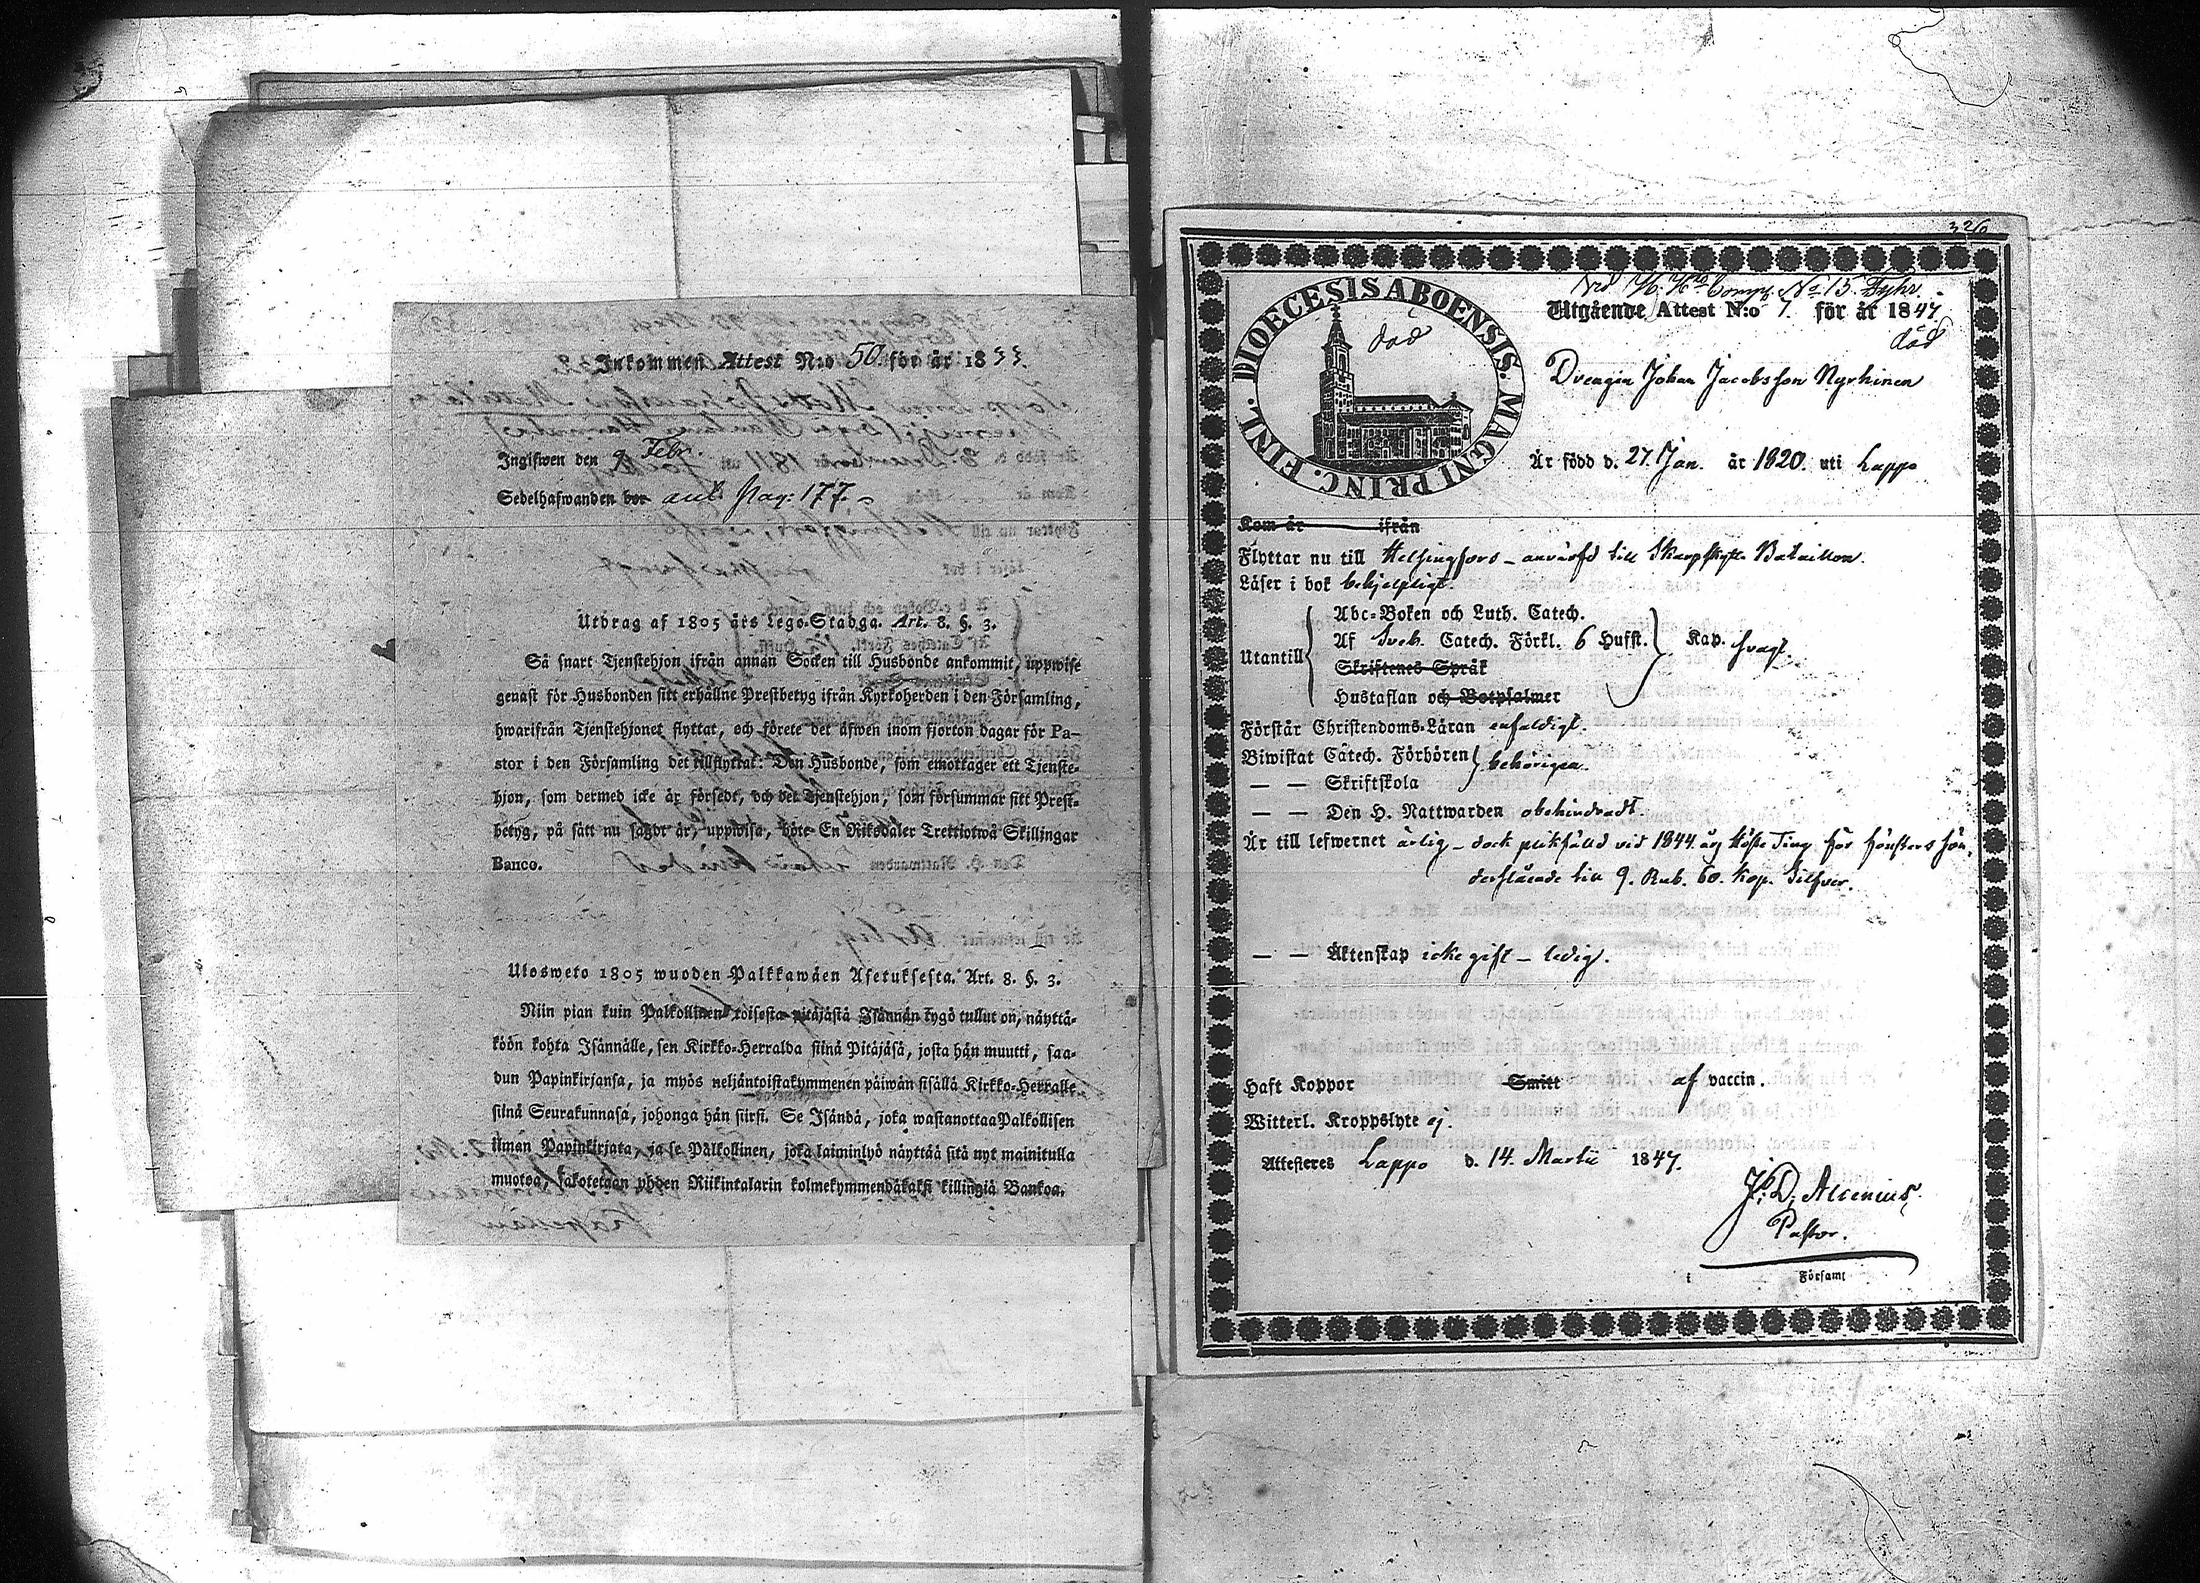 Inkommen Attest N:o 50. för år 1833.
Ingifwen den 9 Febr.
Sedelhafwanden bor ant. pag: 177.
Utdrag af 1805 års Lego-Stadga. Art. 8. §. 3.
Så snart Tjenstehjon ifrån annan Socken till Husbonde ankommit, uppwise
genast för Husbonden sitt erhållne Prestbetyg ifrån Kyrkoherden i den Församling,
hwarifrån Tjenstehjonet flyttat, och förete det äfwen inom fjorton dagar för Pa-
stor i den Församling det tillflyttat: Den Husbonde, som emottager ett Tjenste-
hjon, som dermed icke är försedt, och det Tjenstehjon, som försummar sitt Prest-
betyg, på sätt nu sagdt är, uppwisa, böte En Riksdaler Trettiotwå Skillingar
Banco.
Ulosweto 1805 wuoden Palkkawäen Asetuksesta. Art. 8. §. 3.
Niin pian kuin Palkollinen toisesta pitäjästä Isännän tygö tullut on, näyttä-
köön kohta Isännälle, sen Kirkko-Herralda siinä Pitäjäsä, josta hän muutti, saa-
dun Papinkirjansa, ja myös neljäntoistakymmenen päiwän sisällä Kirkko-Herralle
siinä Seurakunnasa, johonga hän siirsi. Se Isändä, joka wastanottaa Palkollisen
ilman Papinkirjata, ja se Palkollinen, joka laiminlyö näyttää sitä nyt mainitulla
muotoa, sakotetaan yhden Riikintalarin kolmekymmendäkaksi killingiä Bankoa.
326
N:o 15.
DIOECESIS ABOENSIS. MAGNI PRINC. FINL.
död
Utgående Attest N:o 7 för år 1847.
död
Drengen Johan Jacobsson Nyrhinen
Är född d. 27. Jan. år 1820. uti Lappo
Kom år ifrån
Flyttar nu till Helsingfors - anvärfd till Skarpskytte Bataillon.
Läser i bok behjelpligt.
Abc-Boken och Luth. Catech.
Utantill Af Sveb. Catech. Förkl. 6 Hufst. Kap. svagt.
Skriftenes Språk
Hustaflan och Botpsalmer
Förstår Christendoms-Läran enfaldigt.
Biwistat Catech. Förhören behörigen.
— — Skriftskola
— — Den H. Nattwarden obehindradt.
Är till lefwernet ärlig - dock pliktfälld vid 1844 års Höste Ting för fönsters sön-
derslående till 9. Rub. 60. Kop. Silfver.
— — Äktenskap icke gift - ledig.
Haft Koppor Smitt af vaccin.
Witterl. Kroppslyte ej.
Attesteres Lappo d. 14. Martii 1847.
J. D. Alcenius,
Pastor.
i Församl